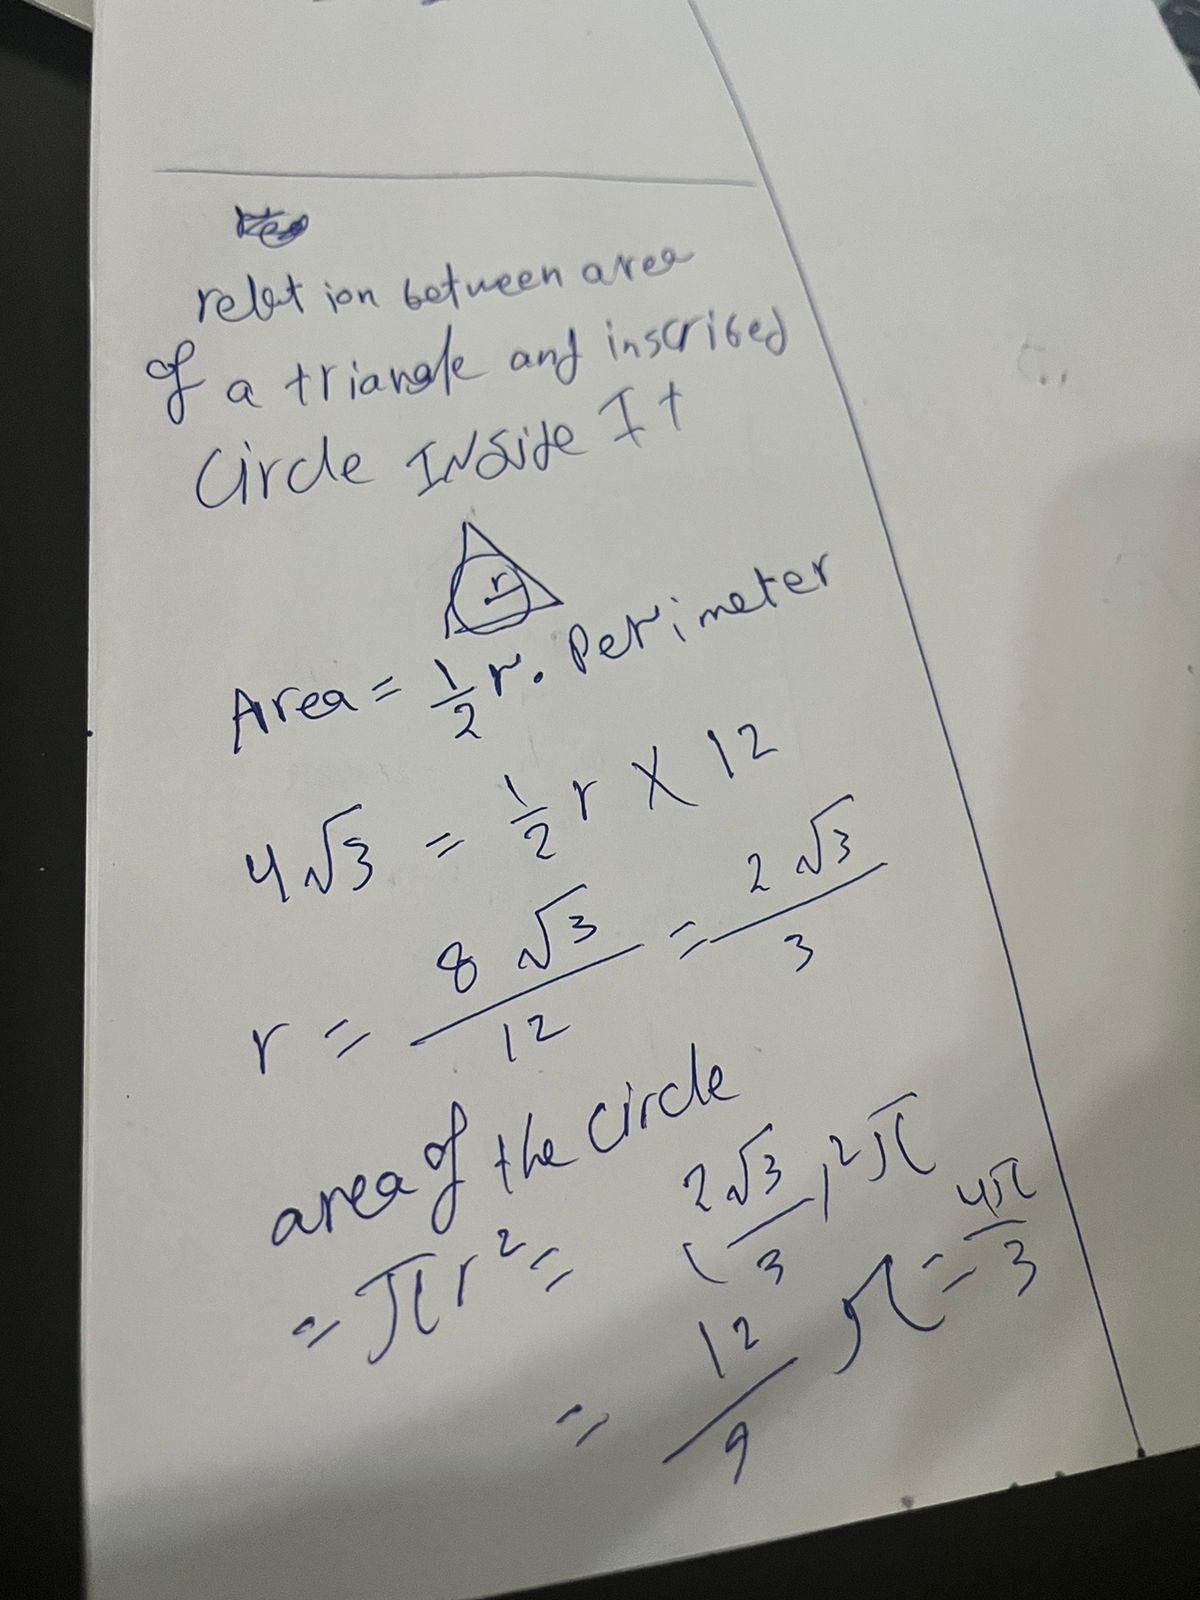 relation between area
of a triangle and inscribed
Circle INside It
r
Area = 1/2 r. Perimeter
4√3 = 1/2 r X 12
r = 8√3/12 = 2√3/3
area of the circle
= πr² = (2√3/3)²π
= 12/9 π = 4π/3